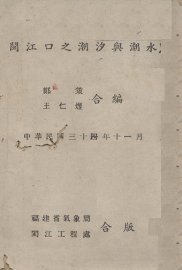 閩江口之潮汐與潮水
鄭策
王仁煌
合編
中華民國三十四年十一月
福建省氣象局
閩江工程處
合版